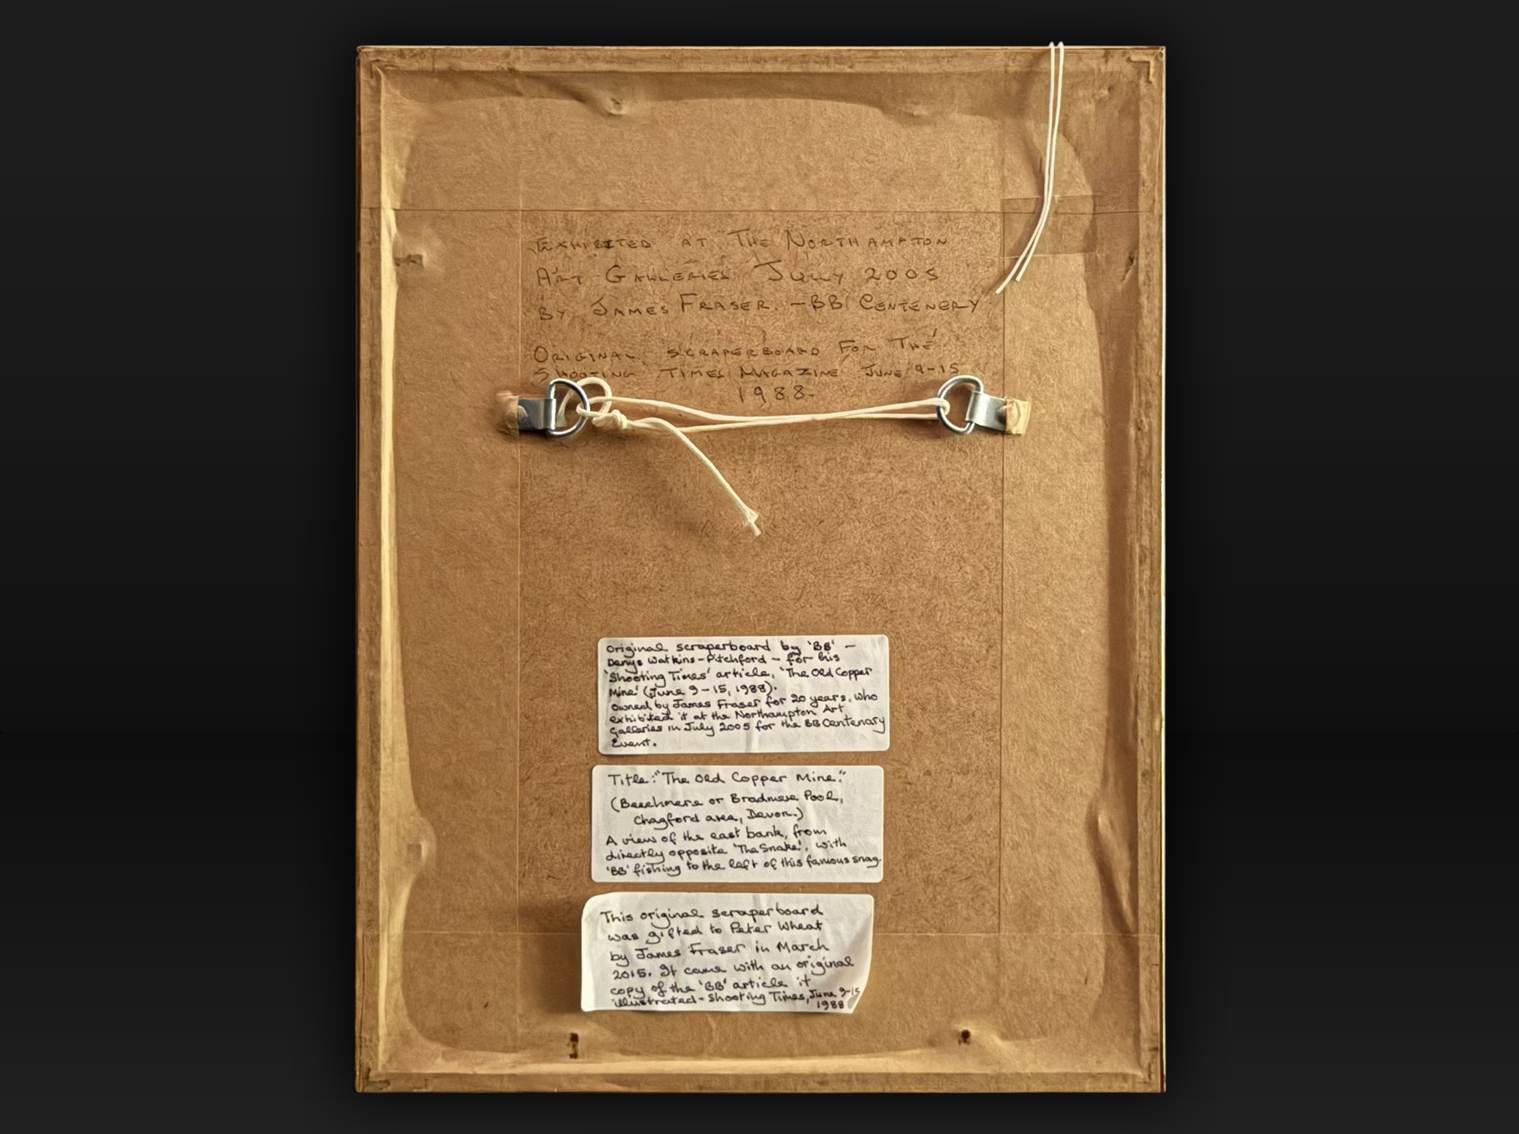 EXHIBITED AT THE NORTHAMPTON
ART GALLERIES JULY 2005
BY JAMES FRASER. - BB CENTENERY
ORIGINAL SCRAPERBOARD FOR THE
SHOOTING TIMES MAGAZINE JUNE 9-15
1988-
Original scraperboard by 'BB' -
Denys Watkins-Pitchford - for his
'Shooting Times' article, 'The Old Copper
Mine' (June 9-15, 1988).
Owned by James Fraser for 20 years, who
exhibited it at the Northampton Art
Galleries in July 2005 for the BB Centenary
Event.
Title: "The Old Copper Mine."
(Beechmere or Bradmere Pool,
Chagford area, Devon.)
A view of the east bank, from
directly opposite 'The Snake', with
'BB' fishing to the left of this famous snag.
This original scraperboard
was gifted to Peter Wheat
by James Fraser in March
2015. It came with an original
copy of the 'BB' article it
illustrated - Shooting Times, June 9-15
1988